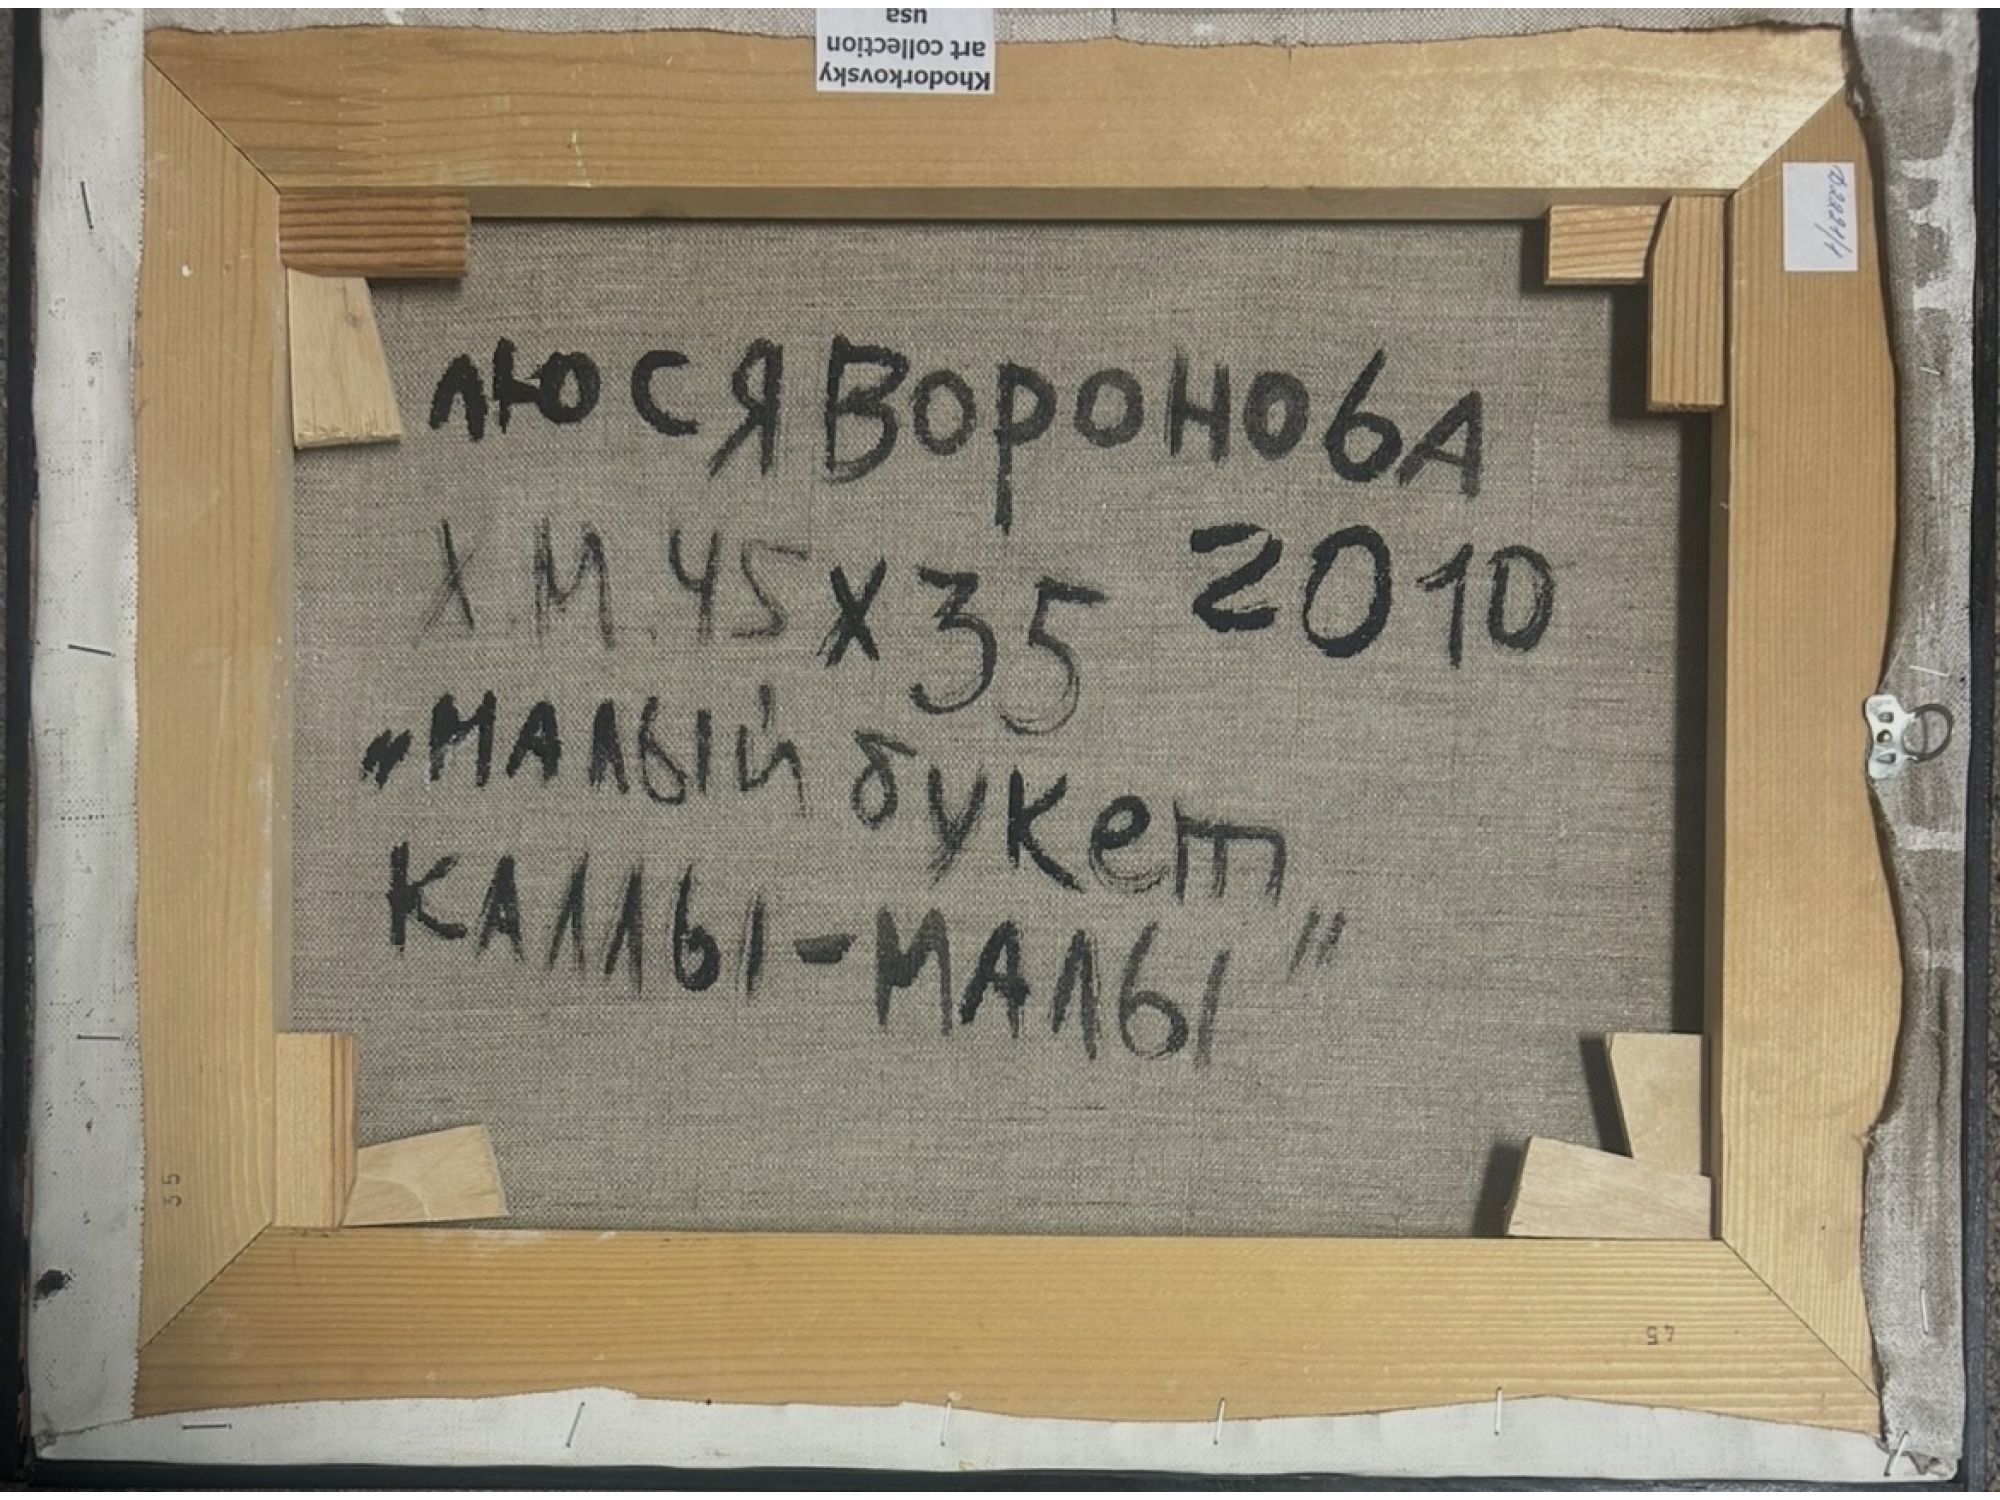 Khodorkovsky
art collection
usa
D2221/1
люся Воронова
Х.М. 45х35 2010
„малый букет
каллы-малы"
35
45